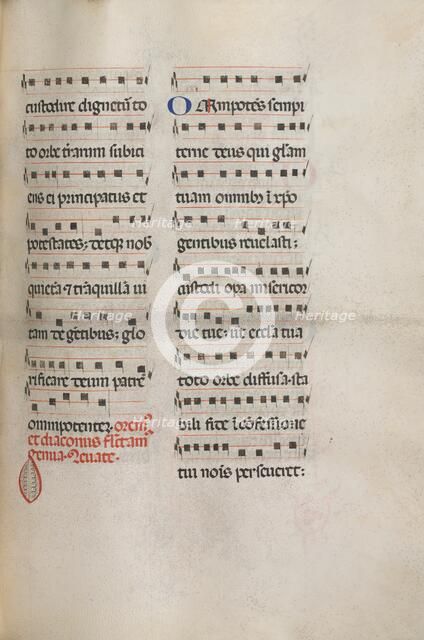 custodire dignetur to
to orbe terrarum subici
ens ei principatus et
potestates; detque nob
quietā & trāquillā ui
tam degētibus; glo
rificare deum patrē
omnipotentem. Orem;
et diaconus. Flectam
genua. Leuate.
Omnipotēs sempi
terne deus qui glām
tuam omnibꝫ ī xp̄o
gentibus reuelasti;
custodi opa misericor
die tue; ut ecclā tua
toto orbe diffusa. sta
bili fide ī cōfessione
tui nōīs perseueret;
Heritage
Heritage
Heritage
Heritage